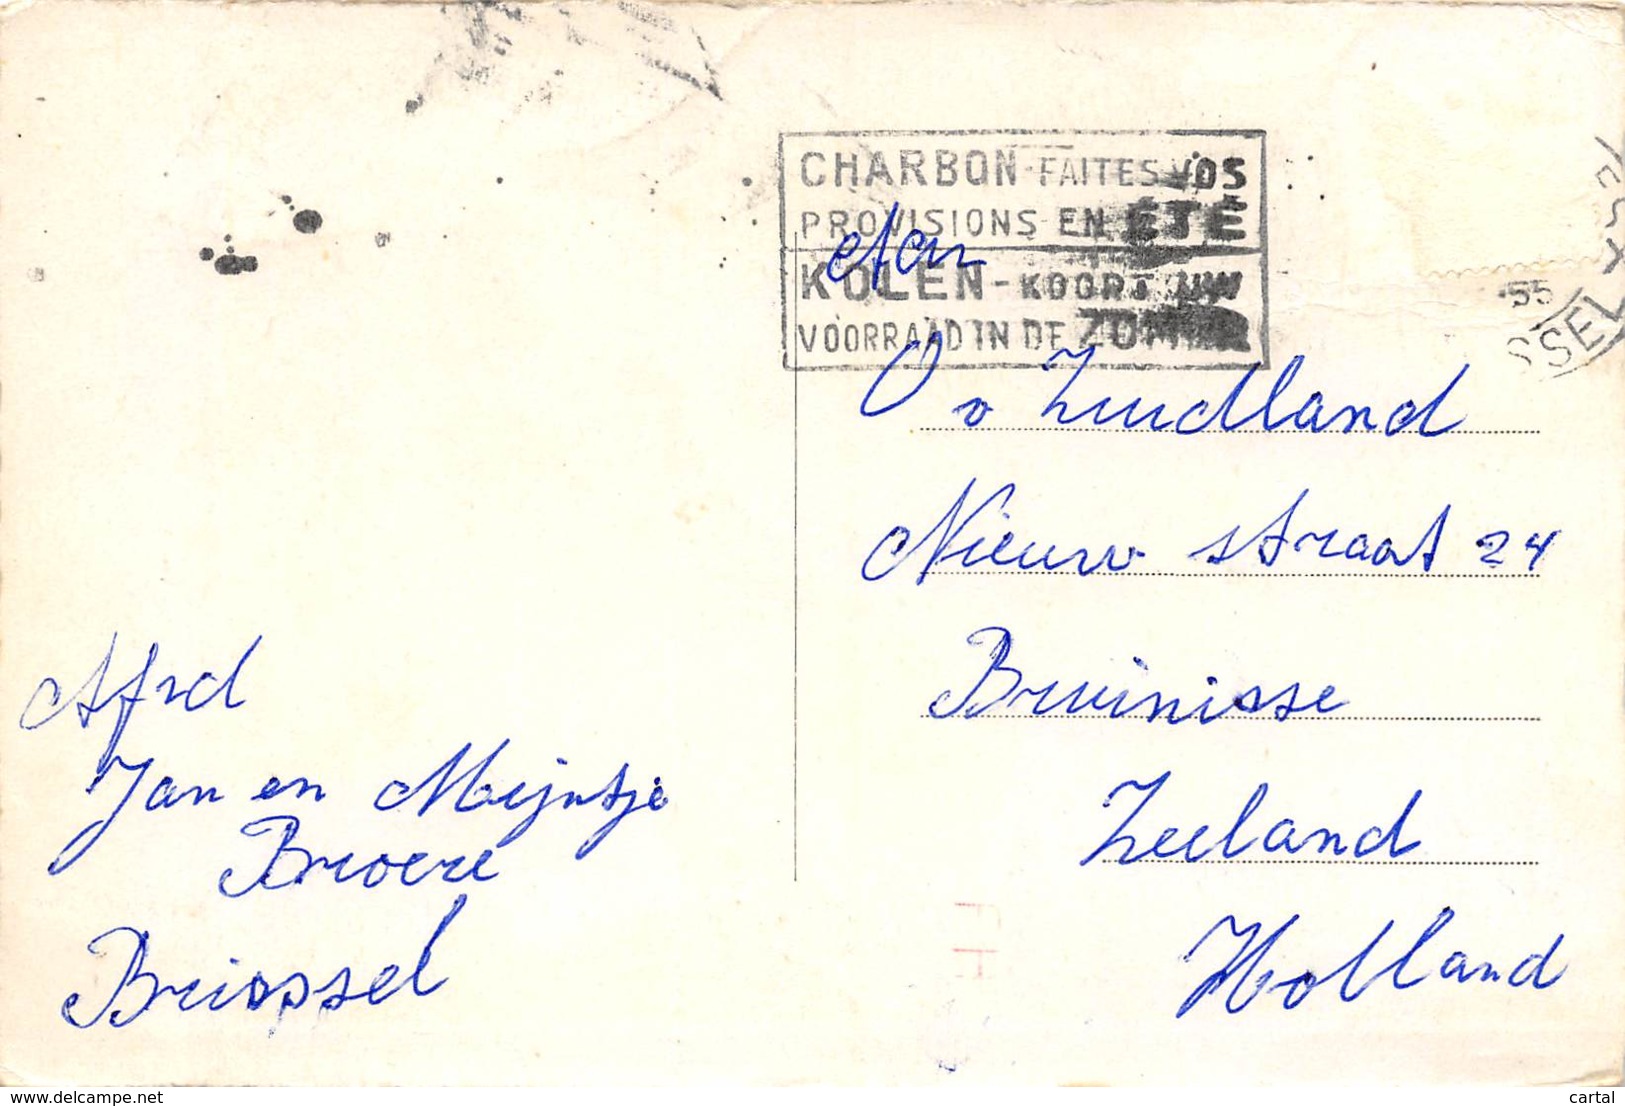 CHARBON-FAITES VOS
PROVISIONS EN ÉTÉ
KOLEN-KOORT UW
VOORRAAD IN DE ZOMER
55
SSEL
Aan
O v Zuidland
Nieuw straat 24
Bruinisse
Zeeland
Holland
Afzd
Jan en Meijntje
Broere
Brussel
www.delcampe.net
cartal